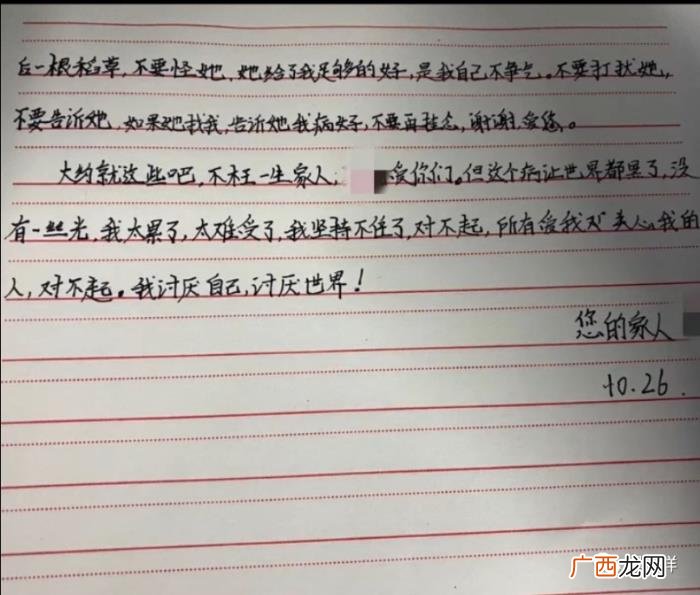 后一根稻草,不要怪她,她给了我足够的好,是我自己不争气,不要打扰她,
不要告诉她,如果她找我,告诉她我病好,不要再挂念,谢谢,爱您。
大约就这些吧,不枉一生家人, 爱你们。但这个病让世界都黑了,没
有一丝光,我太累了,太难受了,我坚持不住了,对不起,所有爱我关心我的
人,对不起。我讨厌自己,讨厌世界!
您的家人
10.26.
洋
广西龙网